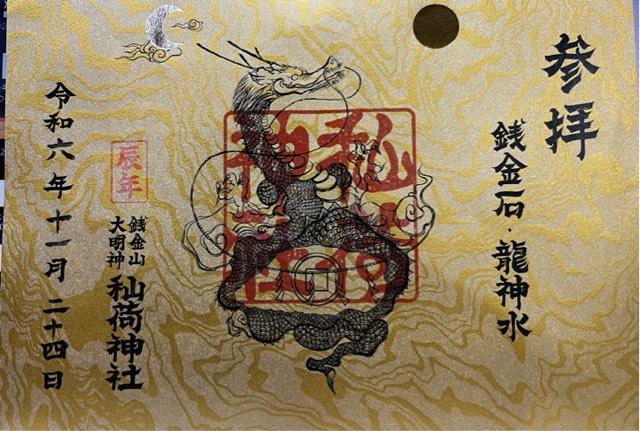 参拝
銭金石・龍神水
秈荷
神社
辰年
銭金山
大明神
秈荷神社
令和六年十一月二十四日